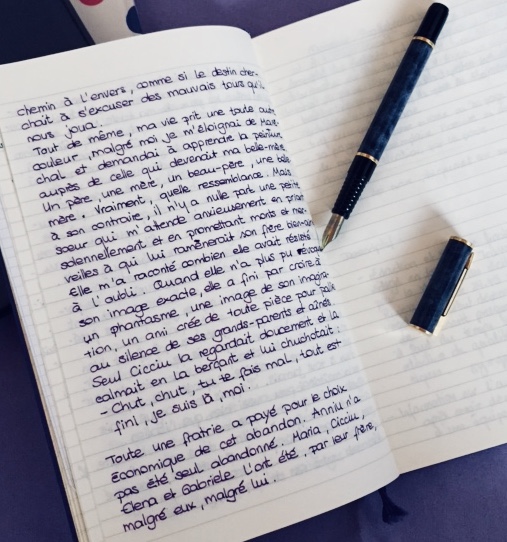 chemin à l'envers, comme si le destin cher-
chait à s'excuser des mauvais tours qu'il
nous joua.
Tout de même, ma vie prit une toute autre
couleur, malgré moi je m'éloignai de
chal et demandai à apprendre la peinture
auprès de celle qui devenait ma belle-mère.
Un père, une mère, un beau-père, une belle-
mère. Vraiment, quelle ressemblance. Mais
à son contraire, il n'y a nulle part une petite
soeur qui m'attende anxieusement en priant
solennellement et en promettant monts et mer-
veilles à qui lui ramènerait son frère bien-aimé
Elle m'a raconté combien elle avait résisté
à l'oubli. Quand elle n'a plus pu
son image exacte, elle a fini par croire à
un phantasme, une image de son imagina-
tion, un ami crée de toute pièce pour
au silence de ses grands-parents et aînés.
Seul Cicciu la regardait doucement et la
calmait en la berçant et lui chuchotait :
- Chut, chut, tu te fais mal, tout est
fini, je suis là, moi.
Toute une fratrie a payé pour le choix
économique de cet abandon. Anniu n'a
pas été seul abandonné. Maria, Cicciu,
Elena et Gabriele l'ont été, par leur frère,
malgré eux, malgré lui.